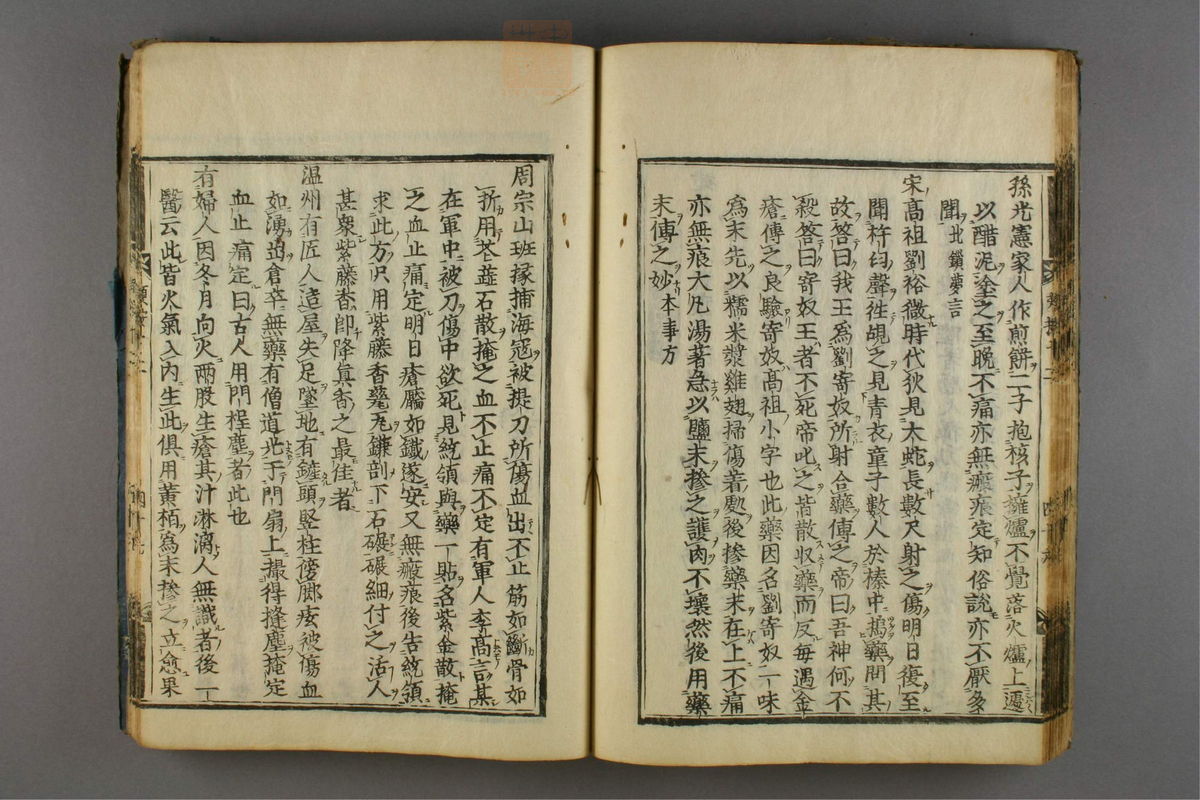 孫光憲家人作煎餅一二子抱孩子擁爐不覺落火爐上遽
以醋泥塗之至晩不痛亦無瘢痕定知俗説亦不厭多
聞北鎖夢言
宋髙祖劉裕微時代狄見太蛇長數尺射之傷明日復至
聞杵臼聲徃覘之見青衣童子數人於榛中搗藥問其
故荅曰我王爲劉寄奴所射合藥傳之帝曰吾神何不
殺荅曰寄奴王者不死帝叱之皆散収藥而反每遇金
瘡傳之良驗寄奴髙祖小字也此藥因名劉寄奴一味
爲末先以糯米漿雞翅掃傷著處後摻藥末在上不痛
亦無痕大凡湯著急以鹽末摻之護肉不壞然後用藥
末傳之妙本事方
周宗山班掾捕海冦被提刀所傷血出不止筋如斷骨如
折用花蘂石散掩之血不止痛不定有軍人李髙言某
在軍中被刀傷中欲死見統領與藥一貼名紫金散掩
之血止痛定明日瘡靨如鐵遂安又無瘢痕後告統領
求此方只用紫藤香甆瓦鎌剖下石碾碾細付之活人
甚衆紫藤香即降眞香之最佳者
温州有匠人造屋失足墜地有鏟頭竪柱傍脚痃被傷血
如湧出倉卒無藥有僧道光于門扇上撮得縫塵掩定
血止痛定曰古人用門桯塵者此也
有婦人因冬月向火兩股生瘡其汁淋漓人無識者後一
醫云此皆火氣入内生此俱用黄栢爲末摻之立愈果